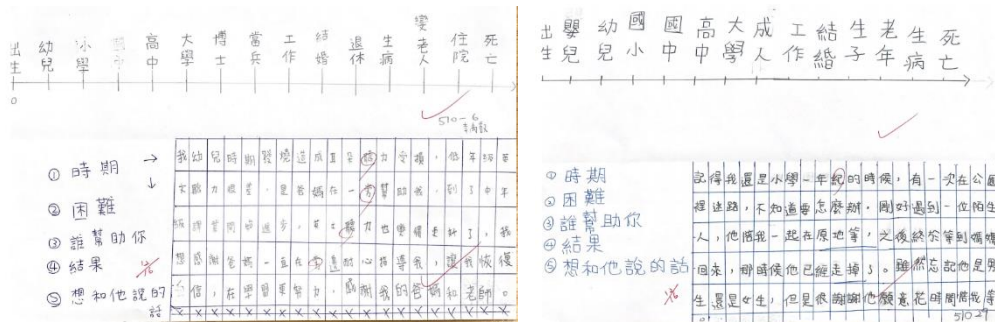 出生 幼兒 小學 國中 高中 大學 博士 當兵 工作 結婚 退休 生病 變老人 住院 死亡
0
510-6
① 時期
② 困難
③ 誰幫助你
④ 結果
⑤ 想和他說的話
我幼兒時期發燒造成耳朵聽力受損，低年級
力很差，是爸媽在一旁幫助我，到了中年
級 進步，聽力也更好了，我
想感謝爸媽一直在旁邊耐心指導我，讓我恢復
信，在學習更努力，感謝我的爸媽和老師。
x x x x x x x x x x x x x x x x
出生 嬰兒 幼兒 國小 國中 高中 大學 成人 工作 結婚 生子 老年 生病 死亡
① 時期
② 困難
③ 誰幫助你
④ 結果
⑤ 想和他說的話
記得我還是小學一年紀的時候，有一次在公園
裡迷路，不知道要怎麼辦。剛好遇到一位陌生
人，他陪我一起在原地等，之後終於等到媽媽
回來，那時候他已經走掉了。雖然忘記他是男
生還是女生，但是很謝謝他願意花時間陪我等
51029